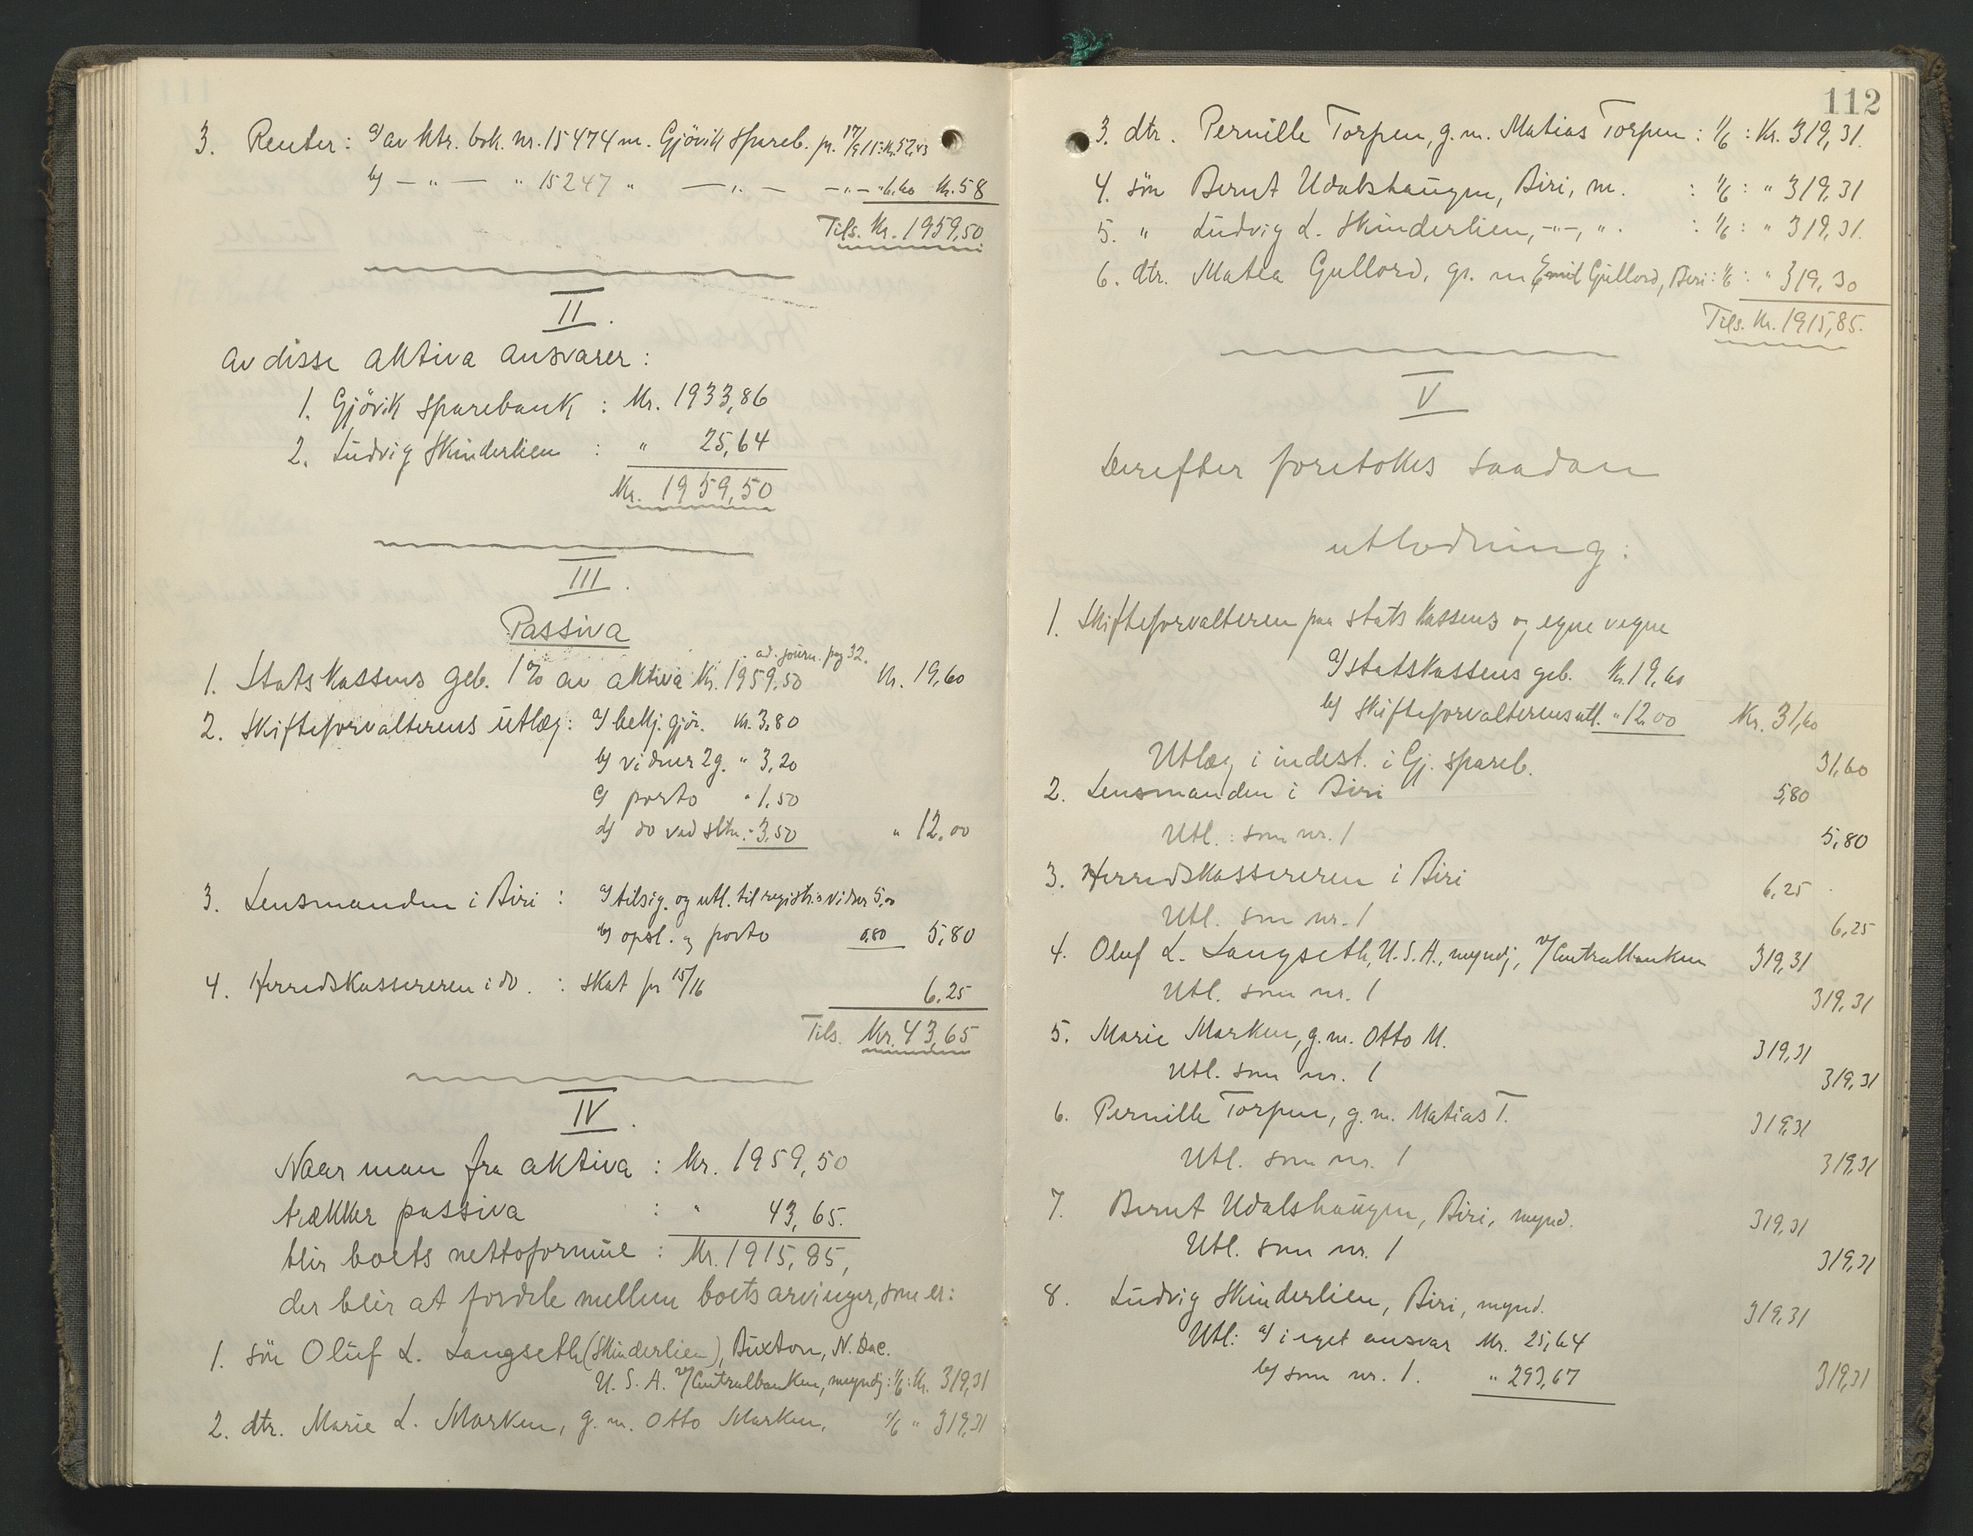 3. Renter: a/ av ktr. bok. nr. 15474 m. Gjövik spareb. pr. 17/9 11: Kr. 52,43
b/ — " — " 15247 " — " — — " — " 6.60 Kr. 58
Tils. Kr. 1959,50
II.
Av disse aktiva ansvarer:
1. Gjövik sparebank : Kr. 1933,86
2. Ludvig Skinderlien : " 25,64
Kr. 1959,50
III.
Passiva
ad. journ. pag 32.
1. Statskassens geb. 1% av aktiva Kr. 1959.50 Kr. 19,60
2. Skifteforvalterens utlæg: a/ bekj. gjör. Kr. 3,80
b/ vidner 2 g. " 3,20
c/ porto " 1,50
d/ do ved sltn. " 3,50 " 12,00
3. Lensmanden i Biri : a/ tilsig. og utl. til registr. vidner 5,00
b/ opsl. og porto 0,80 5,80
4. Herredskassereren i do. : skat pr 15/16 6,25
Tils. Kr. 43,65
IV.
Naar man fra aktiva : Kr. 1959,50
trækker passiva : " 43,65.
blir boets nettoformue : Kr. 1915,85,
der blir at fordele mellem boets arvinger, som er:
1. sön Oluf L. Langseth (Skinderlien), Buxton, N. Dac.
U. S. A. v/Centralbanken, myndg: 1/6: Kr. 319,31
2. dtr. Marie L. Marken, g. m. Otto Marken, 1/6 " 319,31
112
3. dtr. Pernille Torpen, g. m. Matias Torpen : 1/6 : Kr. 319,31.
4. sön Bernt Udalshaugen, Biri, m. : 1/6 : " 319,31
5. " Ludvig L. Skinderlien, -"-, ". : 1/6 : " 319,31.
6. dtr. Matea Gullord, g. m Emil Gullord, Biri : 1/6 : " 319,30
Tils. Kr. 1915,85.
V
Derefter foretokes saadan
utlodning:
1. Skifteforvalteren paa statskassens og egne vegne
a/ statskassens geb. Kr. 19,60
b/ skifteforvalterens utl. " 12.00 Kr. 31,60
Utlæg i indest. i Gj. spareb. 31,60
2. Lensmanden i Biri 5,80
Utl. : som nr. 1 5,80
3. Herredskassereren i Biri 6,25
Utl. som nr. 1 6,25
4. Oluf L. Langseth, U. S. A., myndg, v/Centralbanken 319,31
Utl. som nr. 1 319,31
5. Marie Marken, g. m. Otto M. 319,31
Utl. som nr. 1 319,31
6. Pernille Torpen, g. m. Matias T. 319,31
Utl. som nr. 1 319,31
7. Bernt Udalshaugen, Biri, mynd. 319,31
Utl. som nr. 1 319,31
8. Ludvig Skinderlien, Biri, mynd. 319,31
Utl: a/ i eget ansvar Kr. 25,64
b/ som nr. 1. " 293,67 319,31